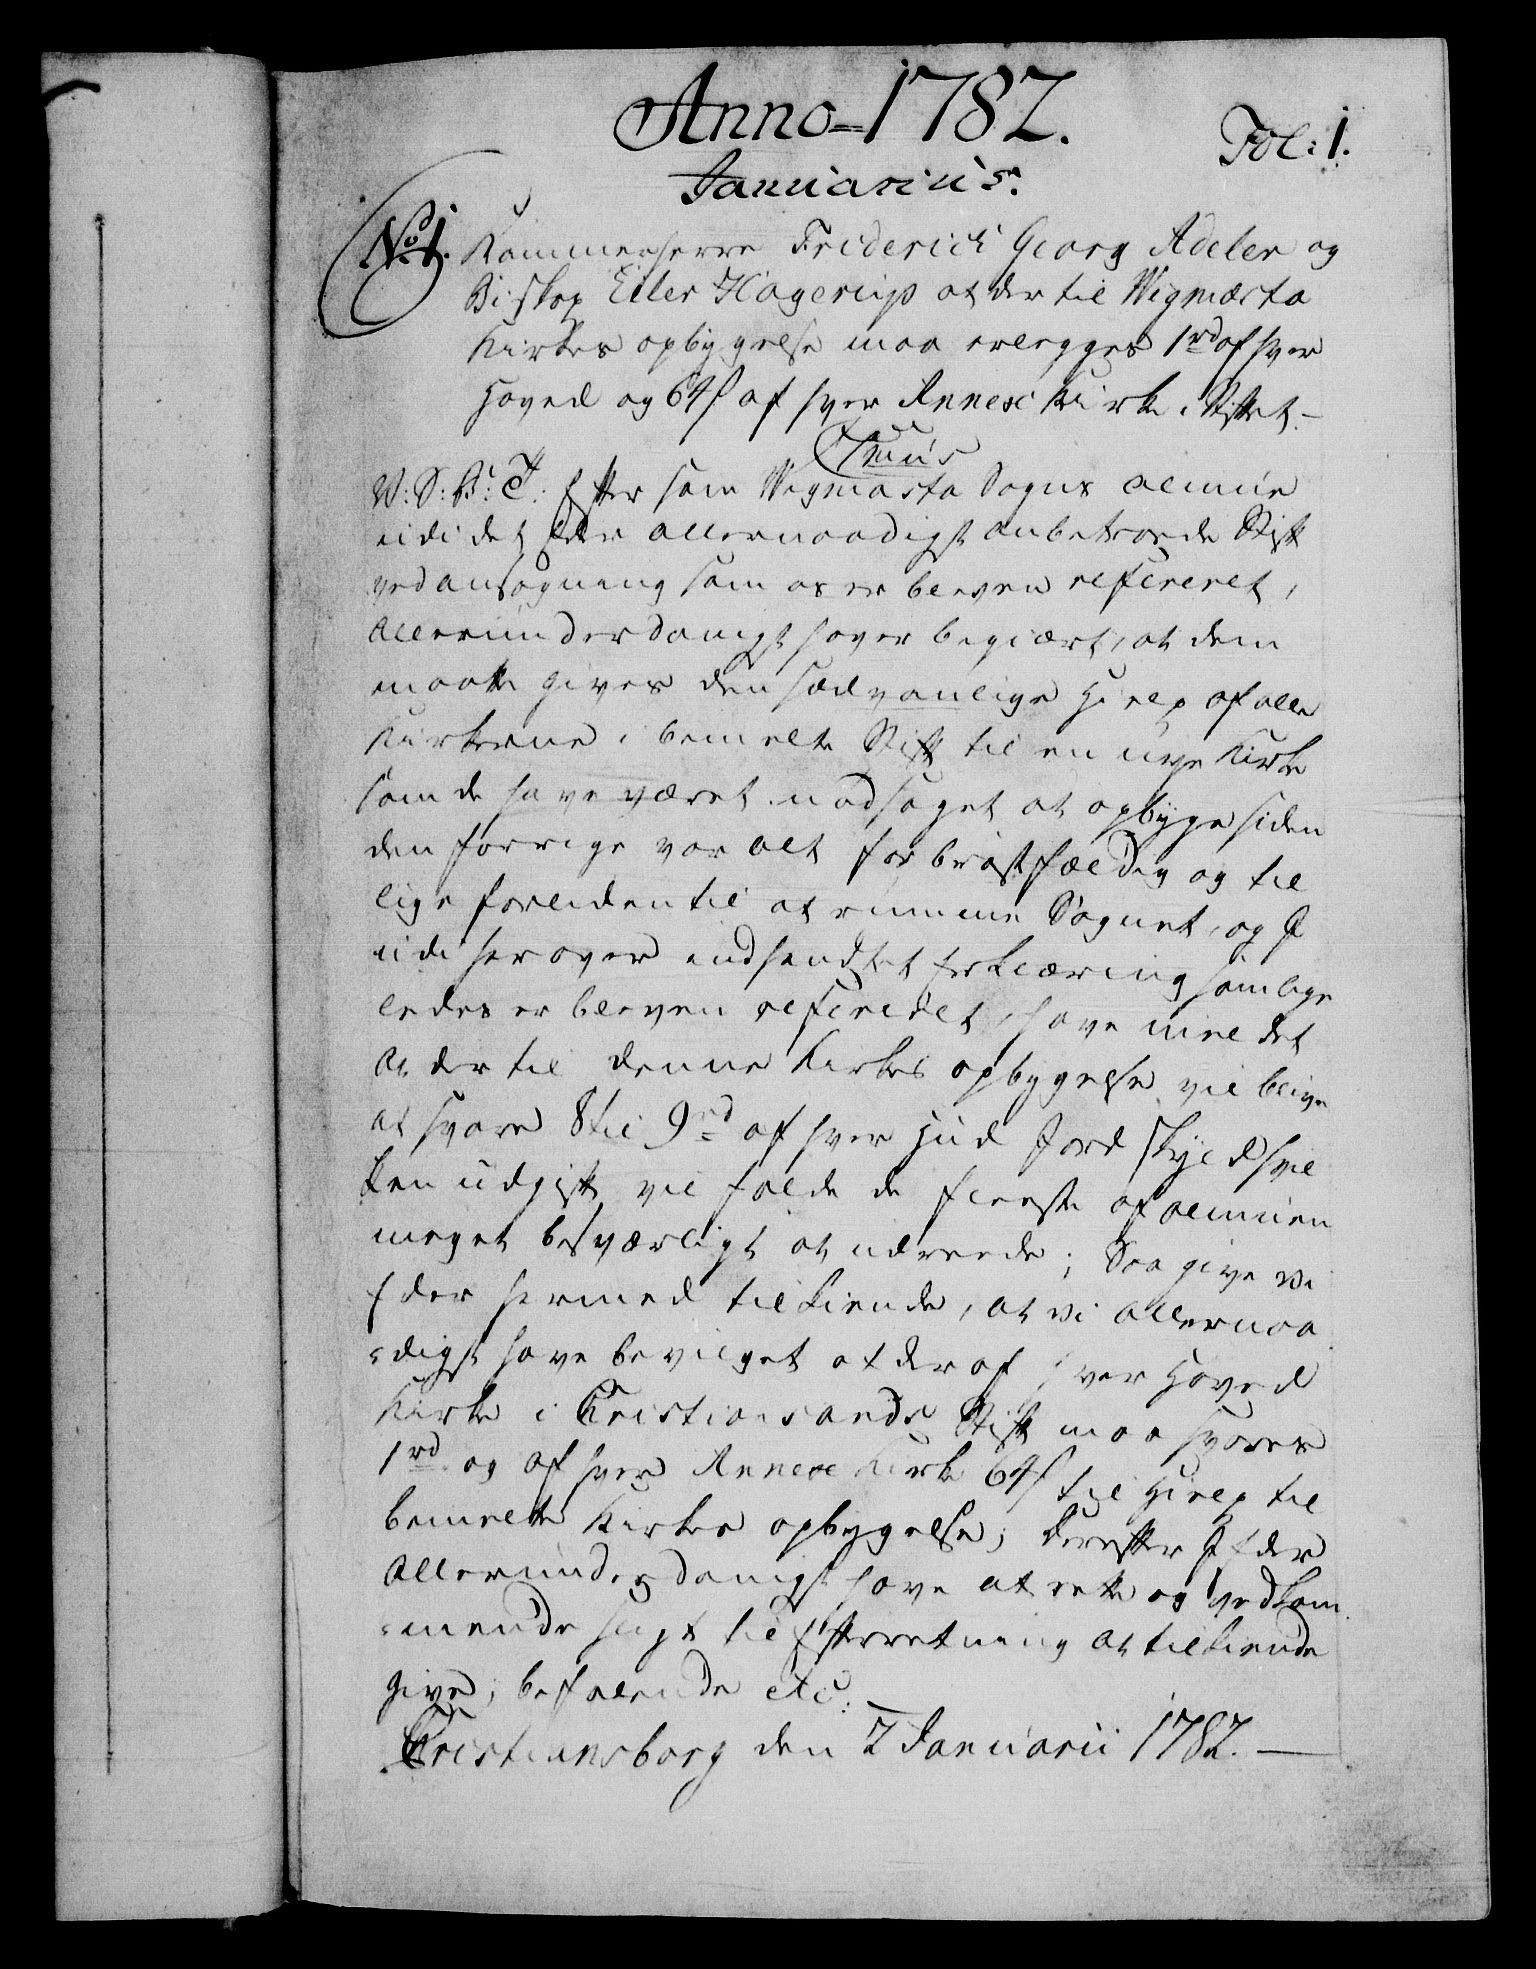 Anno = 1782.
Fol: 1.
Januarius.
No 1. Kammerherre Friderich Georg Adeler og
Biskop Eiler Hagerup at der til Wigmæsta
Kirkes opbyggelse maa erlegges 1 rd af hver
Hoved og 64 s af hver Annexe Kirke i Stiftet. —
V: S: B: T: Eftersom Wigmæsta Sogns Almue
udi det Eder allernaadigst anbetroede Stift
ved ansøgning som os er bleven refereret,
allerunderdanigst haver begiært, at dem
maatte gives den sædvanlige Hielp af alle
Kirkerne i bemelte Stift til en nye Kirke
som de have været nødsaget at opbyge siden
den forrige var alt for brøstfældig og til
lige for liden til at rumme Sognet, og I
udi herover indsendtet Erklæring som lige
ledes er bleven refereret, have meldet
at der til denne Kirkes opbygelse vil blive
at svare 8 til 9 rd af hver Hud Jord Skyld hvil
ken udgift vil falde de fleeste af almuen
meget besværligt at udreede; Saa give vi
Eder hermed tilkiende, at vi allernaa
=digst have bevilget at der af hver Hoved
Kirke i Christiansands Stift maa svares
1 rd og af hver Annexe Kirke 64 s til Hielp til
bemelte Kirkes opbygelse; Derefter I Eder
allerunderdanigst have at rette og vedkom
=mende sligt til Efterretning at tilkiende
give; befalende etc:
Christiansborg den 2 Januarii 1782. —